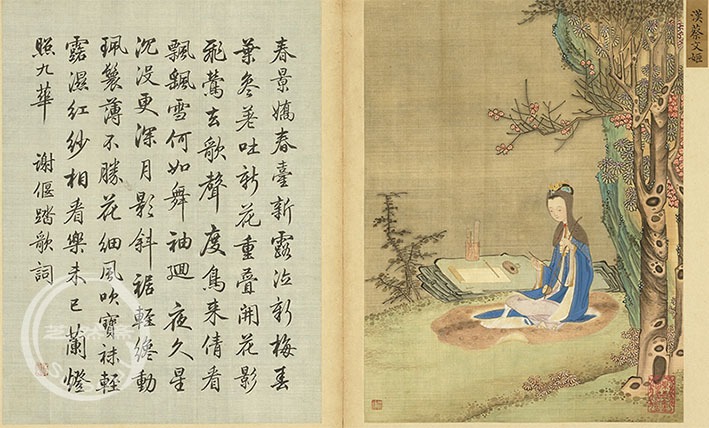 春景嬌春臺新露泣新梅春
葉參差吐新花重疊開花影
飛鶯去歌聲度鳥來倩看
飄颻雪何如舞袖迴 夜久星
沉没更深月影斜裾輕纔動
珮鬟薄不勝花細風吹寶袜輕
露濕紅紗相看樂未已蘭燈
照九華 謝偃踏歌詞
漢蔡文姬